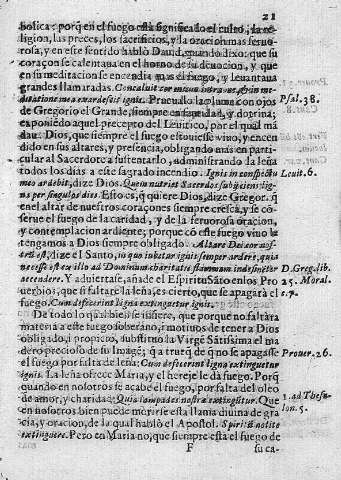 21
bolica: porq̃ en el fuego està significado el culto, la re-
ligion, las preces, los sacrificios, y la oracion mas feruo-
rosa, y en este sentido hablò Dauid, quando dixo: que su
coraçon se calentaua en el horno de la deuocion, y que
en su meditacion se encendia mas el fuego, y leuantaua
grandes llamaradas. Concaluit cor meum intra me, & in me-
ditatione mea exardescit ignis. Prueualo la pluma con ojos
Psal. 38.
de Gregorio el Grande, siempre en santidad, y dotrina;
es poniẽdo aquel precepto del Leuitico, por el qual mã
daua Dios, que siempre el fuego estuuiesse viuo, y encen
dido en sus altares, y presencia, obligando mas en parti-
cular al Sacerdote a sustentarlo, administrando la leña
todos los dias a este sagrado incendio. Ignis in conspectu
Leuit. 6.
meo ardebit, dize Dios. Quem nutriet Sacerdos subijciens lig-
na per singulos dies. Esto es, q̃ quiere Dios, dize Gregor. q̃
en el altar de nuestros coraçones siempre crezca, y se cõ-
serue el fuego de la caridad, y de la feruorosa oracion,
y contemplacion ardiente; porque cõ este fuego viuo la
tengamos a Dios siempre obligado. Altare Dei cor nos-
trũ est, dize el Santo, in quo iubetur ignis semper ardere, quia
necesse est ex illo ad Dominum charitatis flammam indesinẽter
D. Greg. lib.
accendere. Y aduiertase, añade el Espiritu Sãto en los Pro
25. Moral.
uerbios, que si faltare la leña, es cierto, que se apagarà el
c. 7.
fuego. Cum defecerint ligna extinguetur ignis.
De todo lo qual bie, se infiere, que porque no faltàra
materia a este fuego soberano, i motiuos de tener a Dios
obligado, i propicio, substituìo la Virgẽ Sãtissima el ma
dero precioso de su Imagẽ; q̃ a trueq̃ de q̃ no se apagasse
el fuego por falta de leña: Cum defecerint ligna extinguetur
Prouer. 26.
ignis. La leña ofrece Maria, y el herege la dà fuego. Porq̃
quando en nosotros se acabe el fuego, por falta del oleo
de amor, y charidad: Quia lampades nostræ extinguntur. Que
en nosotros bien puede morirse esta llama diuina de gra
1. ad Thesa-
cia, y oracion, de la qual hablò el Apostol. Spiritũ nolite
lon. 5.
extinguere. Pero en Maria no, que siempre està el fuego de
F
su ca-